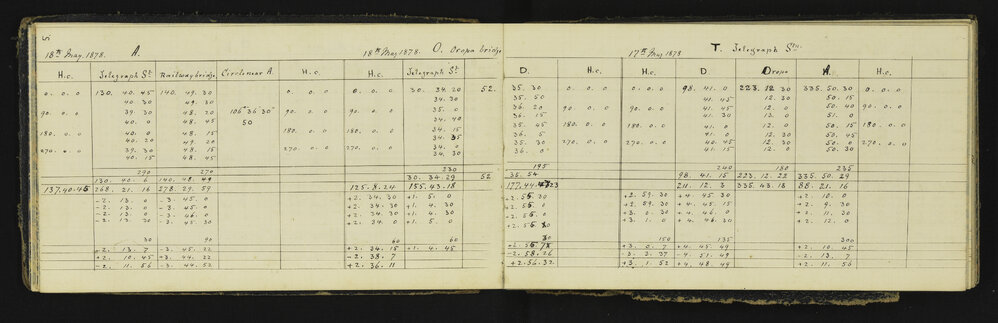 5
18th May. 1878. A. 18th May 1878. O. Oropa bridge
H.c. Telegraph St. Railway bridge Circle near A. H.c. H.c. Telegraph St.
0. 0. 0 130. 40. 45 140. 49. 30 0. 0. 0 0. 0. 0 30. 34. 20 52.
40 30 49. 30 34. 30
90. 0. 0 39. 30 48. 20 106° 36' 30" 90. 0. 0 90. 0. 0 35. 0
40. 0 48. 45 50 34. 40
180. 0. 0 40. 0 48. 15 180. 0. 0 180. 0. 0 34. 15
40. 20 49. 20 34. 35
270. 0. 0 39. 30 48. 15 270. 0. 0 270. 0. 0 34. 0
40. 15 48. 45 34. 30
290 270 230
130. 40. 6 140. 48. 49 30. 34. 29 52
137.40.45 268. 21. 16 278. 29. 59 125. 8. 24 155. 43. 18
-2. 13. 0 -3. 45. 0 +2. 34. 30 +1. 5. 0
-2. 13. 0 -3. 45. 0 +2. 34. 30 +1. 4. 30
-2. 13. 0 -3. 46. 0 +2. 34. 30 +1. 4. 30
-2. 13. 30 -3. 45. 30 +2. 34. 0 +1. 5. 0
30 90 60 60
+2. 13. 7 -3. 45. 22 +2. 34. 15 +1. 4. 45
+2. 10. 45 +3. 44. 22 -2. 38. 7
-2. 11. 56 -3. 44. 52 +2. 36. 11
17th May 1878 T. Telegraph Stn.
D. H.c. H.c. D. Oropa A. H.c.
35. 30 0. 0. 0 0. 0. 0 98. 41. 0 223. 12. 30 335. 50. 30 0. 0. 0
35. 50 41. 45 12. 30 50. 15
36. 20 90. 0. 0 90. 0. 0 41. 45 12. 0 50. 40 90. 0. 0
36. 15 41. 30 13. 0 51. 0
35. 45 180. 0. 0 180. 0. 0 41. 0 12. 0 50. 15 180. 0. 0
36. 5 41. 30 12. 30 50. 45
35. 30 270. 0. 0 270. 0. 0 40. 45 12. 0 50. 0 270. 0. 0
36. 0 41. 15 12. 0 50. 30
195 240 180 235
35. 54 98. 41. 15 223. 12. 22 335. 50. 29
177.44. 23 211. 12. 3 335. 43. 18 88. 21. 16
+2. 55. 30 +2. 59. 30 +4. 45. 30 +2. 10. 0
+2. 55. 0 +2. 59. 30 +4. 45. 15 +2. 9. 30
+2. 55. 0 +3. 0. 30 +4. 46. 0 +2. 11. 30
+2. 55. 30 +3. 1. 0 +4. 46. 30 +2. 12. 0
150 135 300
+3. 0. 7 +4. 45. 49 +2. 10. 45
-2. 58. 26 -3. 3. 37 -4. 51. 49 -2. 13. 7
+2. 56. 32. +3. 1. 52 +4. 48. 49 +2. 11. 56